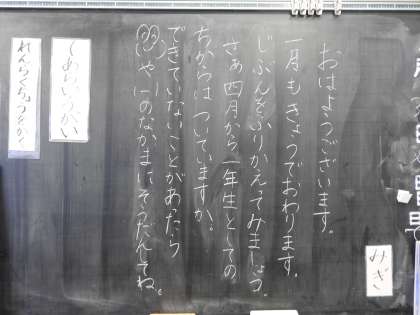 おはようございます。
一月もきょうでおわります。
じぶんをふりかえってみましょう。
さぁ四月から一年生としての
ちからはついていますか。
できていないことがあったら
や一のなかまにそうだんしてね。
みぎ
しあらいうがい
れんらくちょうをかく